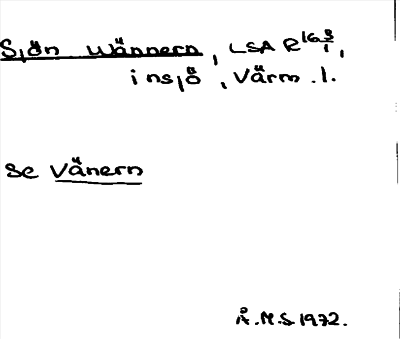 Sjön Wännern, LSA R16 9/1,
insjö, Värm. l.
se Vänern
Å.M.S. 1972.